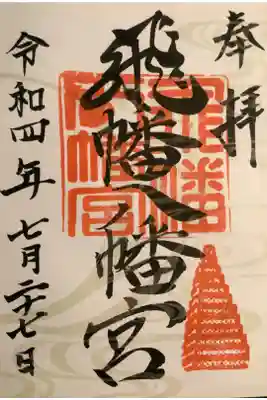 奉拝
飛幡八幡宮
令和四年 七月二十七日